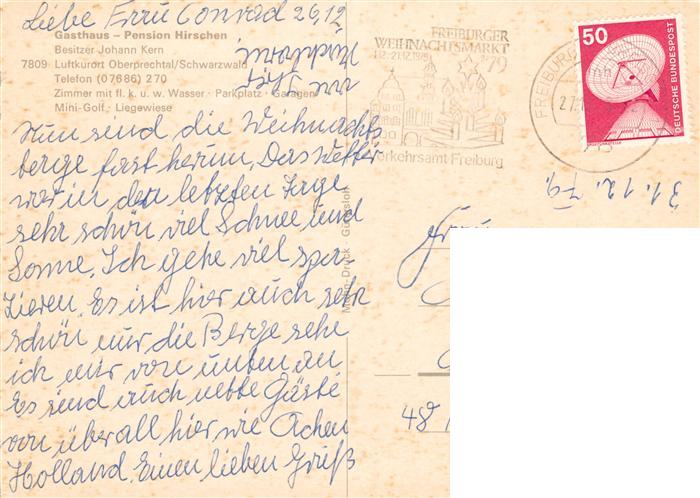 Liebe Frau Conrad 26,12
Gasthaus – Pension Hirschen
Besitzer Johann Kern
7809 Luftkurort Oberprechtal/Schwarzwald
Telefon (07686) 270
Zimmer mit fl. k. u. w. Wasser · Parkplatz · Garagen
Mini-Golf · Liegewiese
Nun sind die Weihnachts
berge fast herum, Das Wetter
war in den letzten Tage
sehr schön viel Schnee und
Sonne, Ich gehe viel spa-
zieren, Es ist hier auch sehr
schön nur die Berge sehe
ich mir von unten an
Es sind auch nette Gäste
von überall hier wie Achen
Holland. Einen lieben Gruß
FREIBURGER
WEIHNACHTSMARKT
'79
Verkehrsamt Freiburg
FREIBURG
50
DEUTSCHE BUNDESPOST
31.12.79,
Frau
48